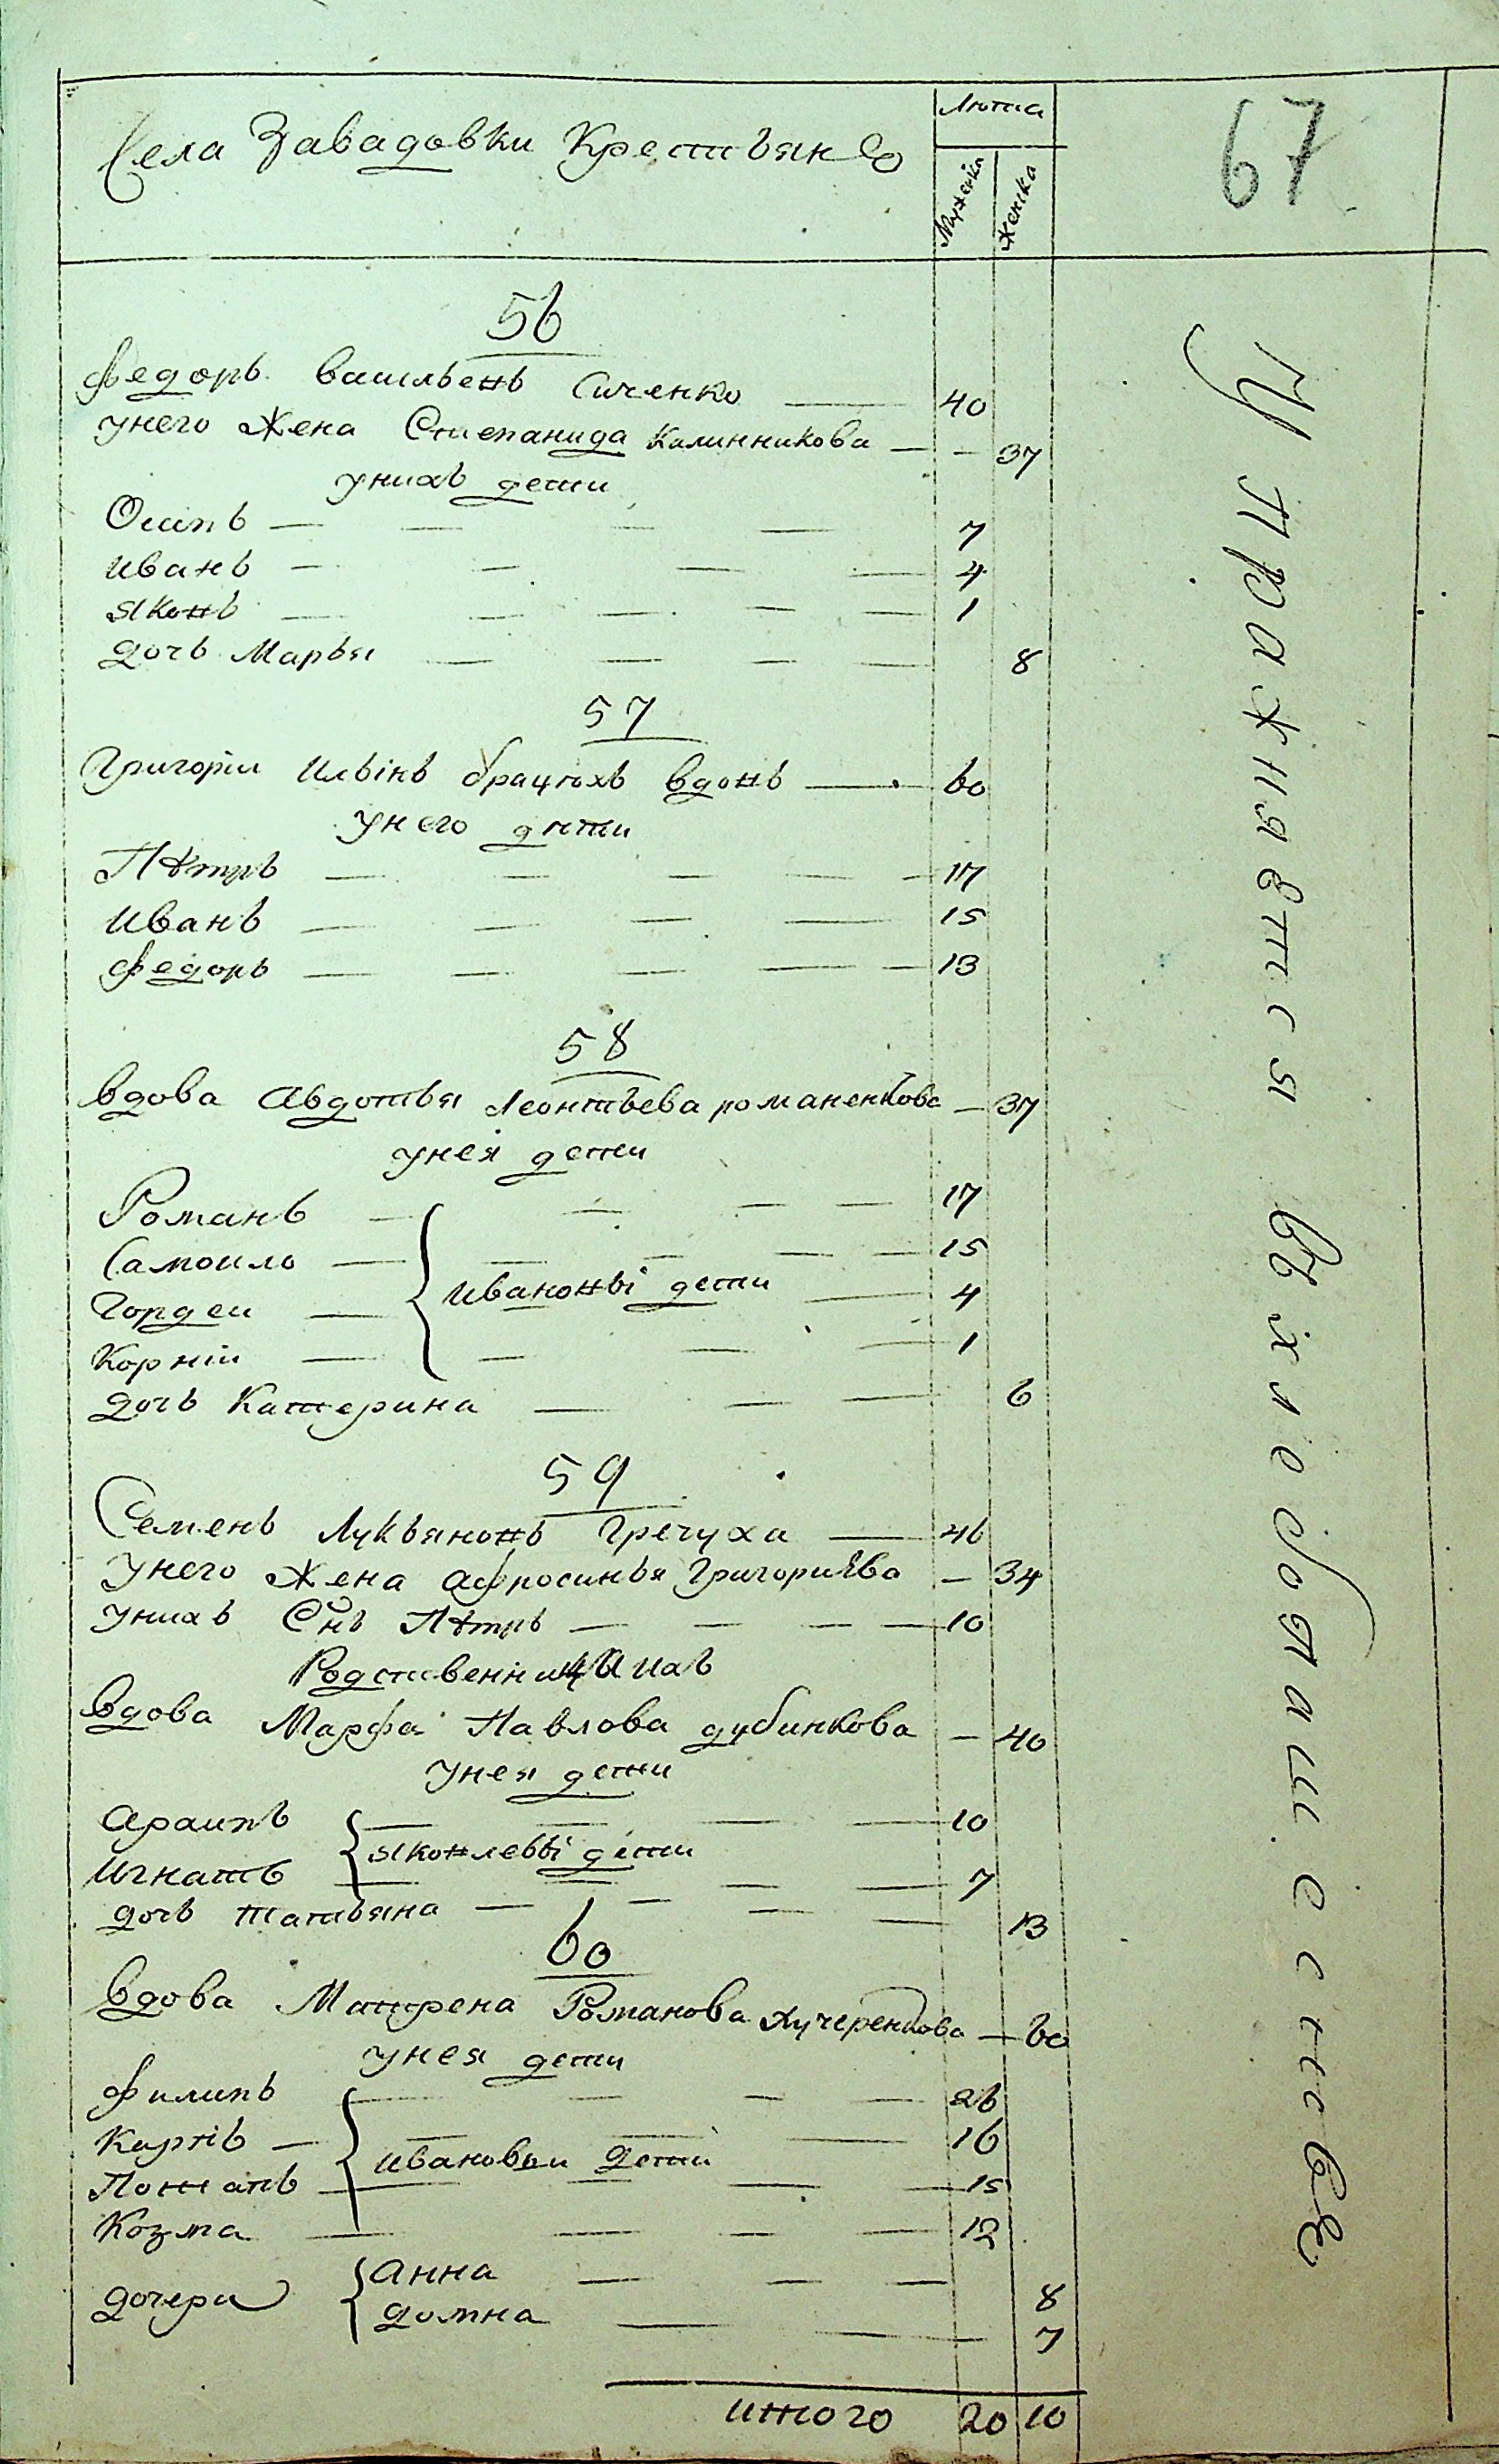 Села Завадовки Крестьянъ
Лѣта
Мужеска
Женска
67
56
Федоръ Васильевъ Сиченко — 40
унего Жена Степанида Калинникова — 37
унихъ дети
Осипъ — 7
Иванъ — 4
Яковъ — 1
дочь Марья — 8
57
Григорїи Ильинъ вдовъ — 60
унего дѣти
Пѣтръ — 17
Иванъ — 15
Федоръ — 13
58
вдова Авдотья Леонтьева романенкова — 37
унея дети
Романъ — 17
Самоило — 15
Гордеи — Ивановы дети — 4
Корнїи — 1
дочь Катерина — 6
59
Семенъ Лукьяновъ Гречуха — 46
унего Жена Афросинья Григориѣва — 34
унихъ Снъ Пѣтръ — 10
Родственницы ихъ
Вдова Марфа Павлова дубинкова — 40
унея дети
Архипъ — 10
Яковлевы дети
Игнатъ — 7
дочь татьяна — 13
60
Вдова Матрена Романова Кучеренкова — 60
унея дети
Филипъ — 26
Карпъ — 16
Ивановы дети
Потапъ — 15
Козма — 12
дочери
Анна — 8
домна — 7
итого 20 10
Упражняется в хлебопашестве